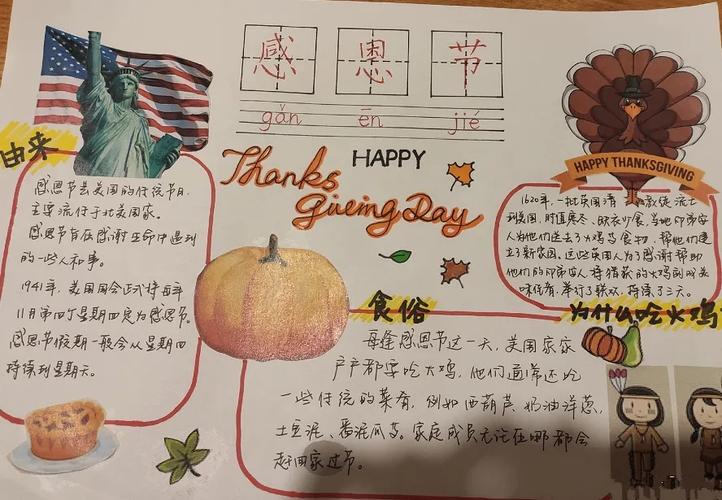 感恩节
gǎn ēn jié
HAPPY
Thanks
giveing Day
HAPPY THANKSGIVING
由来
感恩节是美国的传统节日,
主要流行于北美国家。
感恩节旨在感谢生命中遇到
的一些人和事。
1941年,美国国会正式将每年
11月第四个星期四定为感恩节。
感恩节假期一般会从星期四
持续到星期天。
1620年,一批英国清教徒流亡
到美国,时值寒冬,缺衣少食,当地印第安
人为他们送去了火鸡等食物,帮他们建
立了新家园,这些英国人为了感谢帮助
他们的印第安人,将猎获的火鸡制成美
味佳肴,举行了联欢,持续了三天。
为什么吃火鸡
食俗
每逢感恩节这一天,美国家家
户户都要吃火鸡,他们通常还吃
一些传统的菜肴,例如西葫芦、奶油洋葱、
土豆泥、番泥瓜等。家庭成员无论在哪都会
赶回家过节。